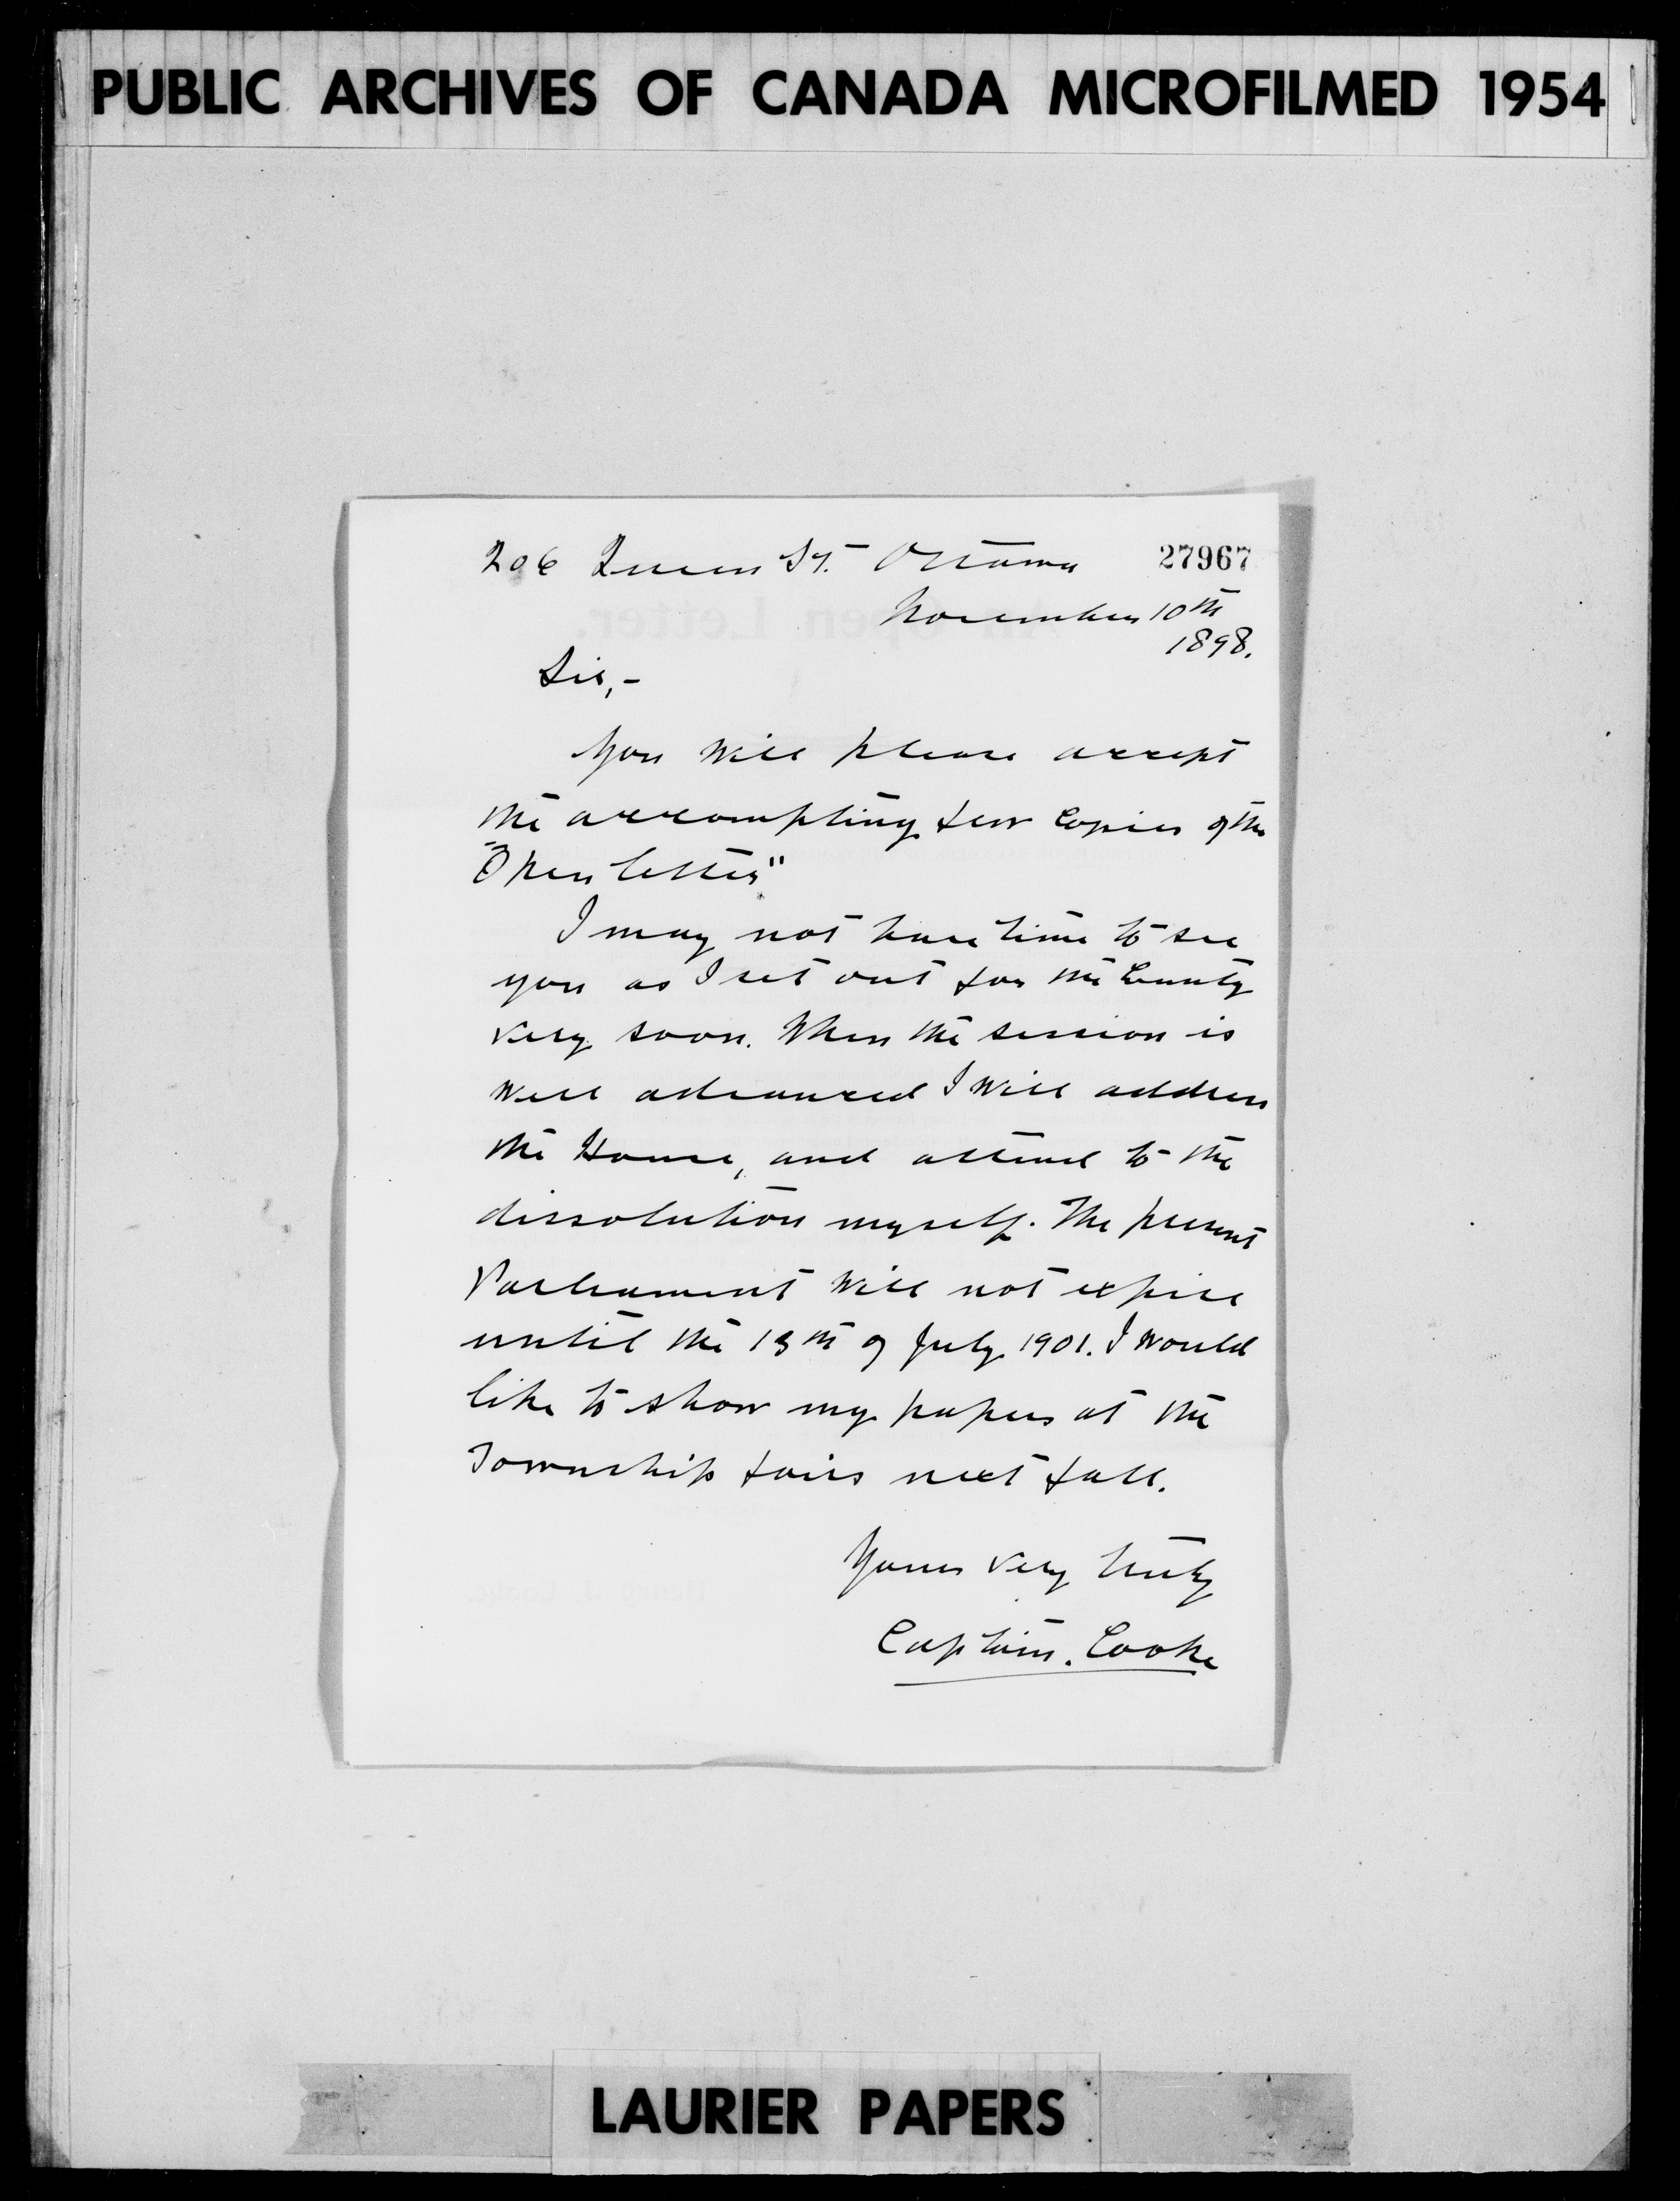 PUBLIC ARCHIVES OF CANADA MICROFILMED 1954
206 Queen St. Ottawa 27967
November 10th
1898.
Sir,-
You will please accept
the accompting few Copies of the
"Open Letter"
I may not have time to see
you as I set out for the County
very soon. When the session is
well advanced I will address
the House, and attend to the
dissolution myself. The present
Parliament will not expire
until the 13th of July 1901. I would
like to show my papers at the
Township fairs next fall.
Yours very truly
Captain. Cooke
LAURIER PAPERS